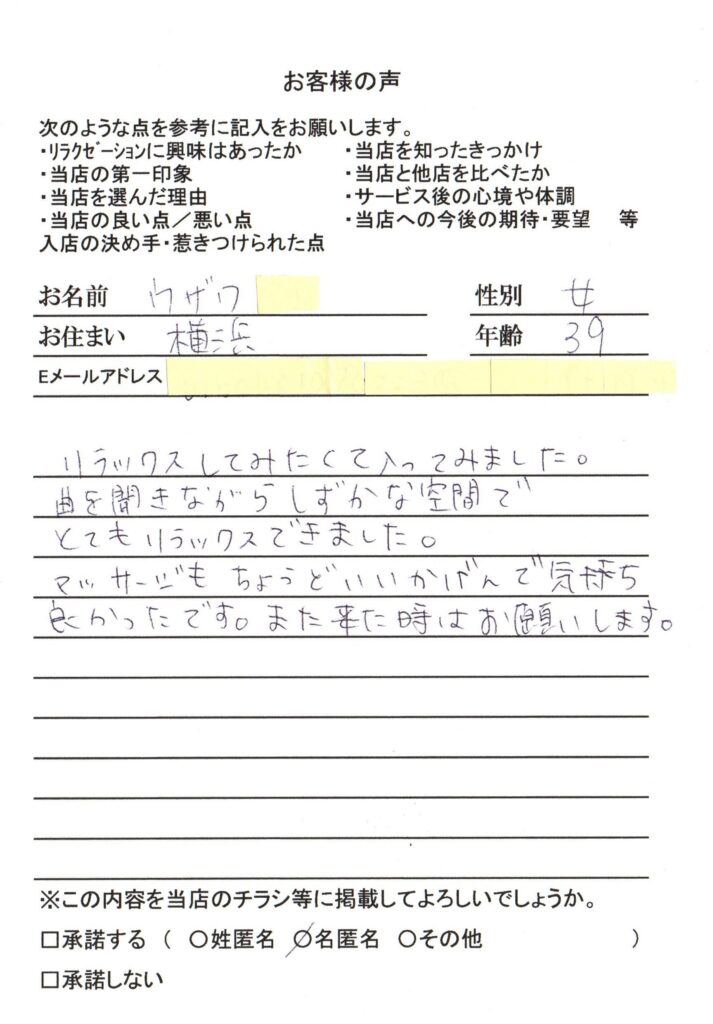 お客様の声
次のような点を参考に記入をお願いします。
・ﾘﾗｸｾﾞｰｼｮﾝに興味はあったか ・当店を知ったきっかけ
・当店の第一印象 ・当店と他店を比べたか
・当店を選んだ理由 ・サービス後の心境や体調
・当店の良い点／悪い点 ・当店への今後の期待・要望 等
入店の決め手・惹きつけられた点
お名前 ウザワ 性別 女
お住まい 横浜 年齢 39
Eメールアドレス
リラックスしてみたくて入ってみました。
曲を聞きながらしずかな空間で
とてもリラックスできました。
マッサージもちょうどいいかげんで気持ち
良かったです。また来た時はお願いします。
※この内容を当店のチラシ等に掲載してよろしいでしょうか。
□承諾する（ ○姓匿名 ○名匿名 ○その他 ）
□承諾しない